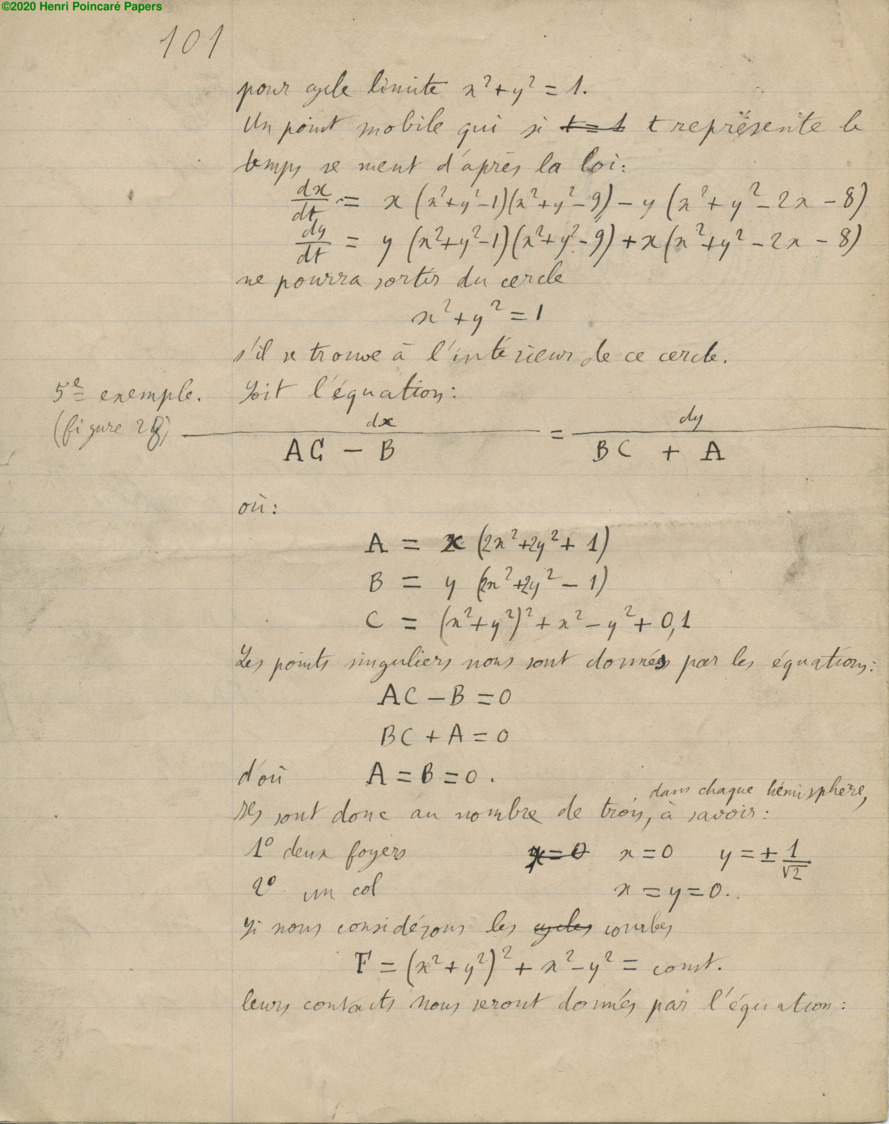 ©2020 Henri Poincaré Papers
101
pour cycle limite x² + y² = 1.
Un point mobile qui si t = 1 t représente le
temps se meut d'après la loi:
dx/dt = x (x²+y²-1)(x²+y²-9) - y (x²+y²-2x-8)
dy/dt = y (x²+y²-1)(x²+y²-9) + x(x²+y²-2x-8)
ne pourra sortir du cercle
x² + y² = 1
s'il se trouve à l'intérieur de ce cercle.
5e exemple. Soit l'équation:
(figure 28) dx/(AC - B) = dy/(BC + A)
où:
A = x (2x²+2y²+1)
B = y (2x²+2y²-1)
C = (x²+y²)² + x² - y² + 0,1
Les points singuliers nous sont donnés par les équations:
AC - B = 0
BC + A = 0
d'où A = B = 0.
dans chaque hémisphère,
Ils sont donc au nombre de trois, à savoir:
1° deux foyers x = 0 x = 0 y = ± 1/√2
2° un col x = y = 0.
Si nous considérons les cycles courbes
F = (x²+y²)² + x² - y² = const.
leurs contacts nous seront donnés par l'équation: